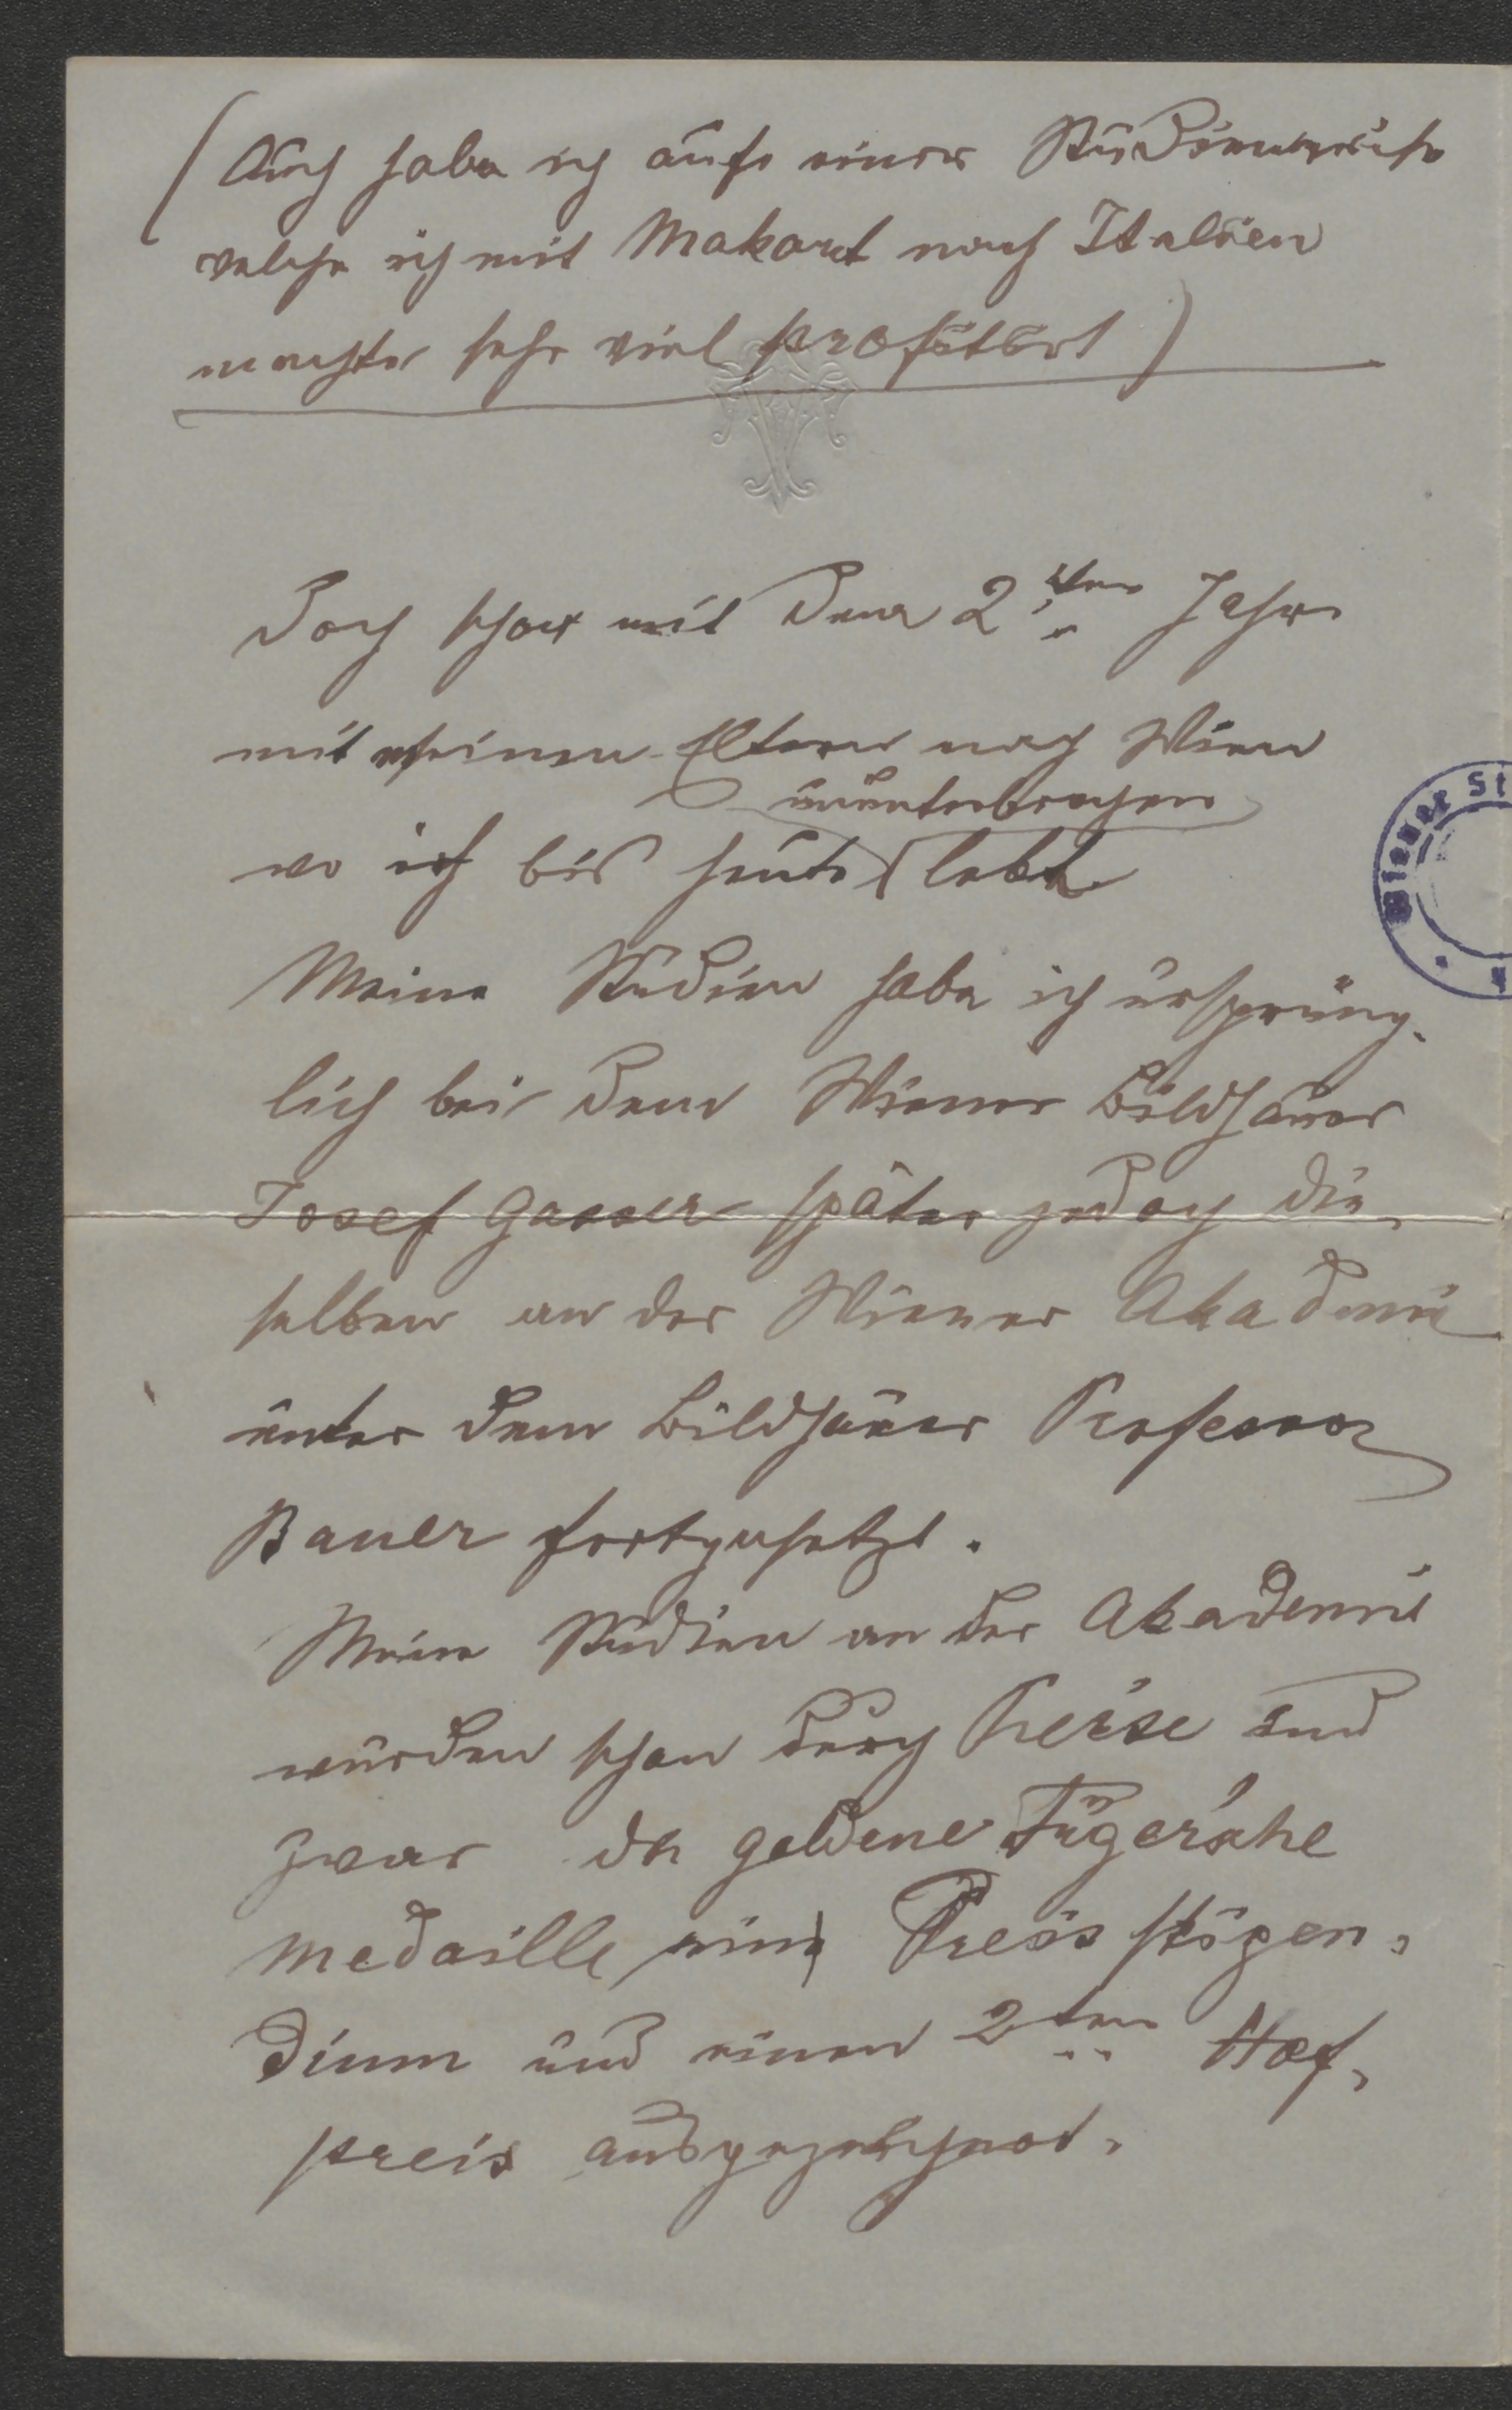 (Auch habe ich aufs einer Studienreise
welche ich mit Makart nach Italien
machte sehr viel profitirt)
doch schon mit dem 2ten Jahre
mit meinen Eltern nach Wien
ununterbrochen
wo ich bis heute lebte
Meine Studien habe ich ursprüng-
lich bei dem Wiener Bildhauer
Josef Gasser später jedoch die-
selben an der Wiener Akademie
unter dem Bildhauer Professor
Bauer fortgesetzt.
Meine Studien an der Akademie
wurden schon durch Preise und
zwar die goldene Fügersche
Medaille, ein Preis stipen-
dium und einen 2ten Hof-
preis ausgezeichnet.
Wiener St